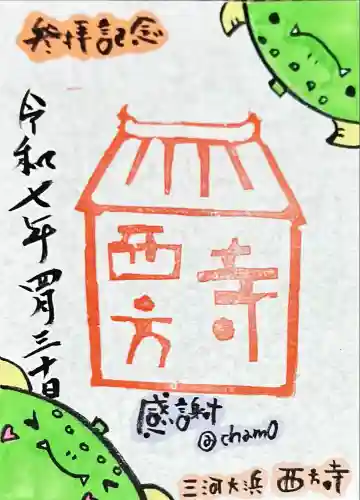 参拝記念
令和七年四月三十日
西方寺
感謝
@cham0
三河大浜 西方寺